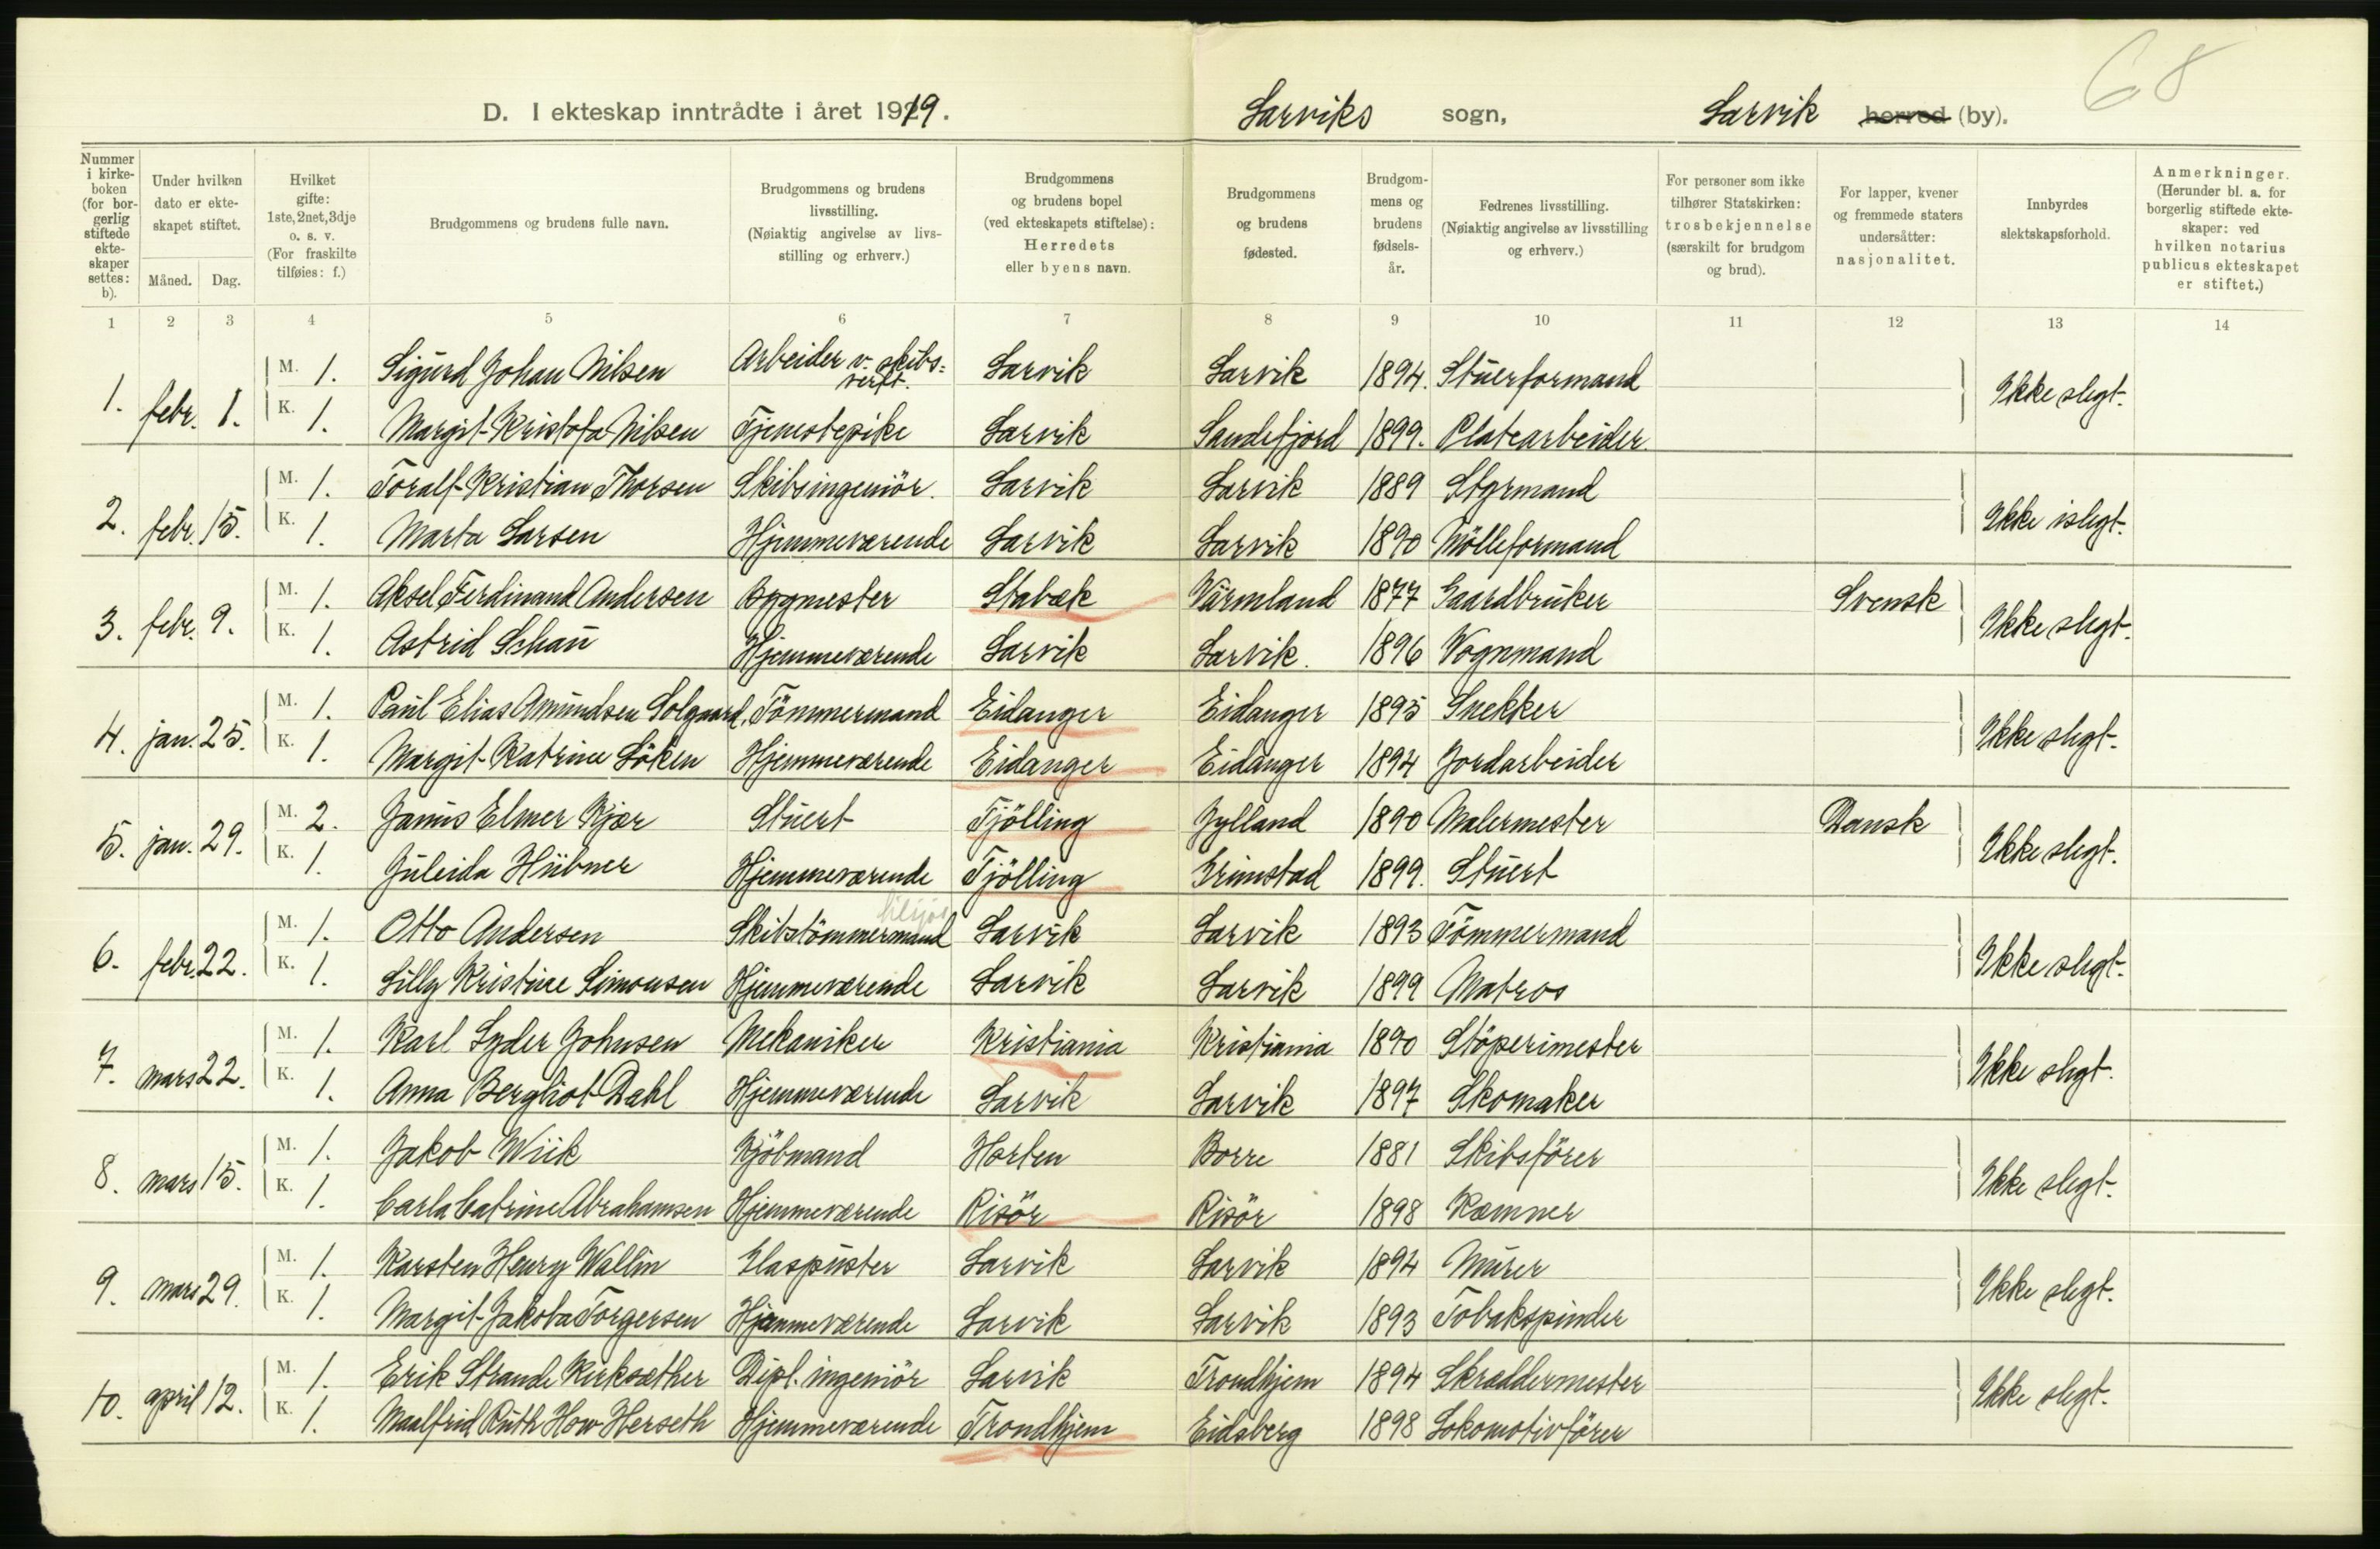 68
D. I ekteskap inntrådte i året 1919. Larviks sogn, Larvik herred (by).
Nummer i kirkeboken (for borgerlig stiftede ekteskaper settes: b).
Under hvilken dato er ekteskapet stiftet.
Måned. Dag.
Hvilket gifte: 1ste, 2net, 3dje o. s. v. (For fraskilte tilføies: f.)
Brudgommens og brudens fulle navn.
Brudgommens og brudens livsstilling. (Nøiaktig angivelse av livsstilling og erhverv.)
Brudgommens og brudens bopel (ved ekteskapets stiftelse): Herredets eller byens navn.
Brudgommens og brudens fødested.
Brudgommens og brudens fødselsår.
Fedrenes livsstilling. (Nøiaktig angivelse av livsstilling og erhverv.)
For personer som ikke tilhører Statskirken: trosbekjennelse (særskilt for brudgom og brud).
For lapper, kvener og fremmede staters undersåtter: nasjonalitet.
Innbyrdes slektskapsforhold.
Anmerkninger. (Herunder bl. a. for borgerlig stiftede ekteskaper: ved hvilken notarius publicus ekteskapet er stiftet.)
1 2 3 4 5 6 7 8 9 10 11 12 13 14
1. febr. 1. M. 1. Sigurd Johan Nilsen Arbeider v. skibs=verft. Larvik Larvik 1894. Stuerformand Ikke slegt.
K. 1. Margit Kristofa Nilsen Tjenestepike Larvik Sandefjord 1899. Platearbeider.
2. febr. 15. M. 1. Toralf Kristian Thorsen Skibsingeniör. Larvik Larvik 1889 Styrmand Ikke islegt.
K. 1. Marta Larsen Hjemmeværende Larvik Larvik 1890 Mölleformand
3. febr. 9. M. 1. Aksel Ferdinand Andersen Bygmester Stabæk Värmland 1877 Gaardbruker Svensk Ikke slegt.
K. 1. Astrid Schau Hjemmeværende Larvik Larvik. 1896 Vognmand
4. jan. 25. M. 1. Paul Elias Amundsen Solgaard, Tömmermand Eidanger Eidanger 1895 Snekker Ikke slegt.
K. 1. Margit Katrine Löken Hjemmeværende Eidanger Eidanger 1894 Jordarbeider
5. jan. 29. M. 2. Janus Elmer Kjær Stuert Tjölling Jylland 1890 Malermester Dansk Ikke slegt.
K. 1. Juleida Hübner Hjemmeværende Tjölling Grimstad 1899. Stuert
6. febr. 22. M. 1. Otto Andersen Skibstömmermand Larvik Larvik 1893 Tömmermand Ikke slegt.
K. 1. Lilly Kristine Simonsen Hjemmeværende Larvik Larvik 1899 Matros
7. mars 22. M. 1. Karl Lyder Johnsen Mekaniker Kristiania Kristiania 1890 Stöperimester Ikke slegt.
K. 1. Anna Bergliot Dahl Hjemmeværende Larvik Larvik 1897 Skomaker
8. mars 15. M. 1. Jakob Wiik Kjöbmand Horten Borre 1881 Skibsförer Ikke slegt.
K. 1. Carla Catrine Abrahamsen Hjemmeværende Risör Risör 1898 Kæmner
9. mars 29. M. 1. Karsten Henry Wallin Glaspuster Larvik Larvik 1894 Murer Ikke slegt.
K. 1. Margit Jakoba Torgersen Hjemmeværende Larvik Larvik 1893 Tobakspinder
10. april 12. M. 1. Erik Strande Kirksæther Dipl. ingeniör Larvik Trondhjem 1894 Skraddermester Ikke slegt.
K. 1. Maalfrid Ruth How Herseth Hjemmeværende Trondhjem Eidsberg 1898 Lokomotivförer